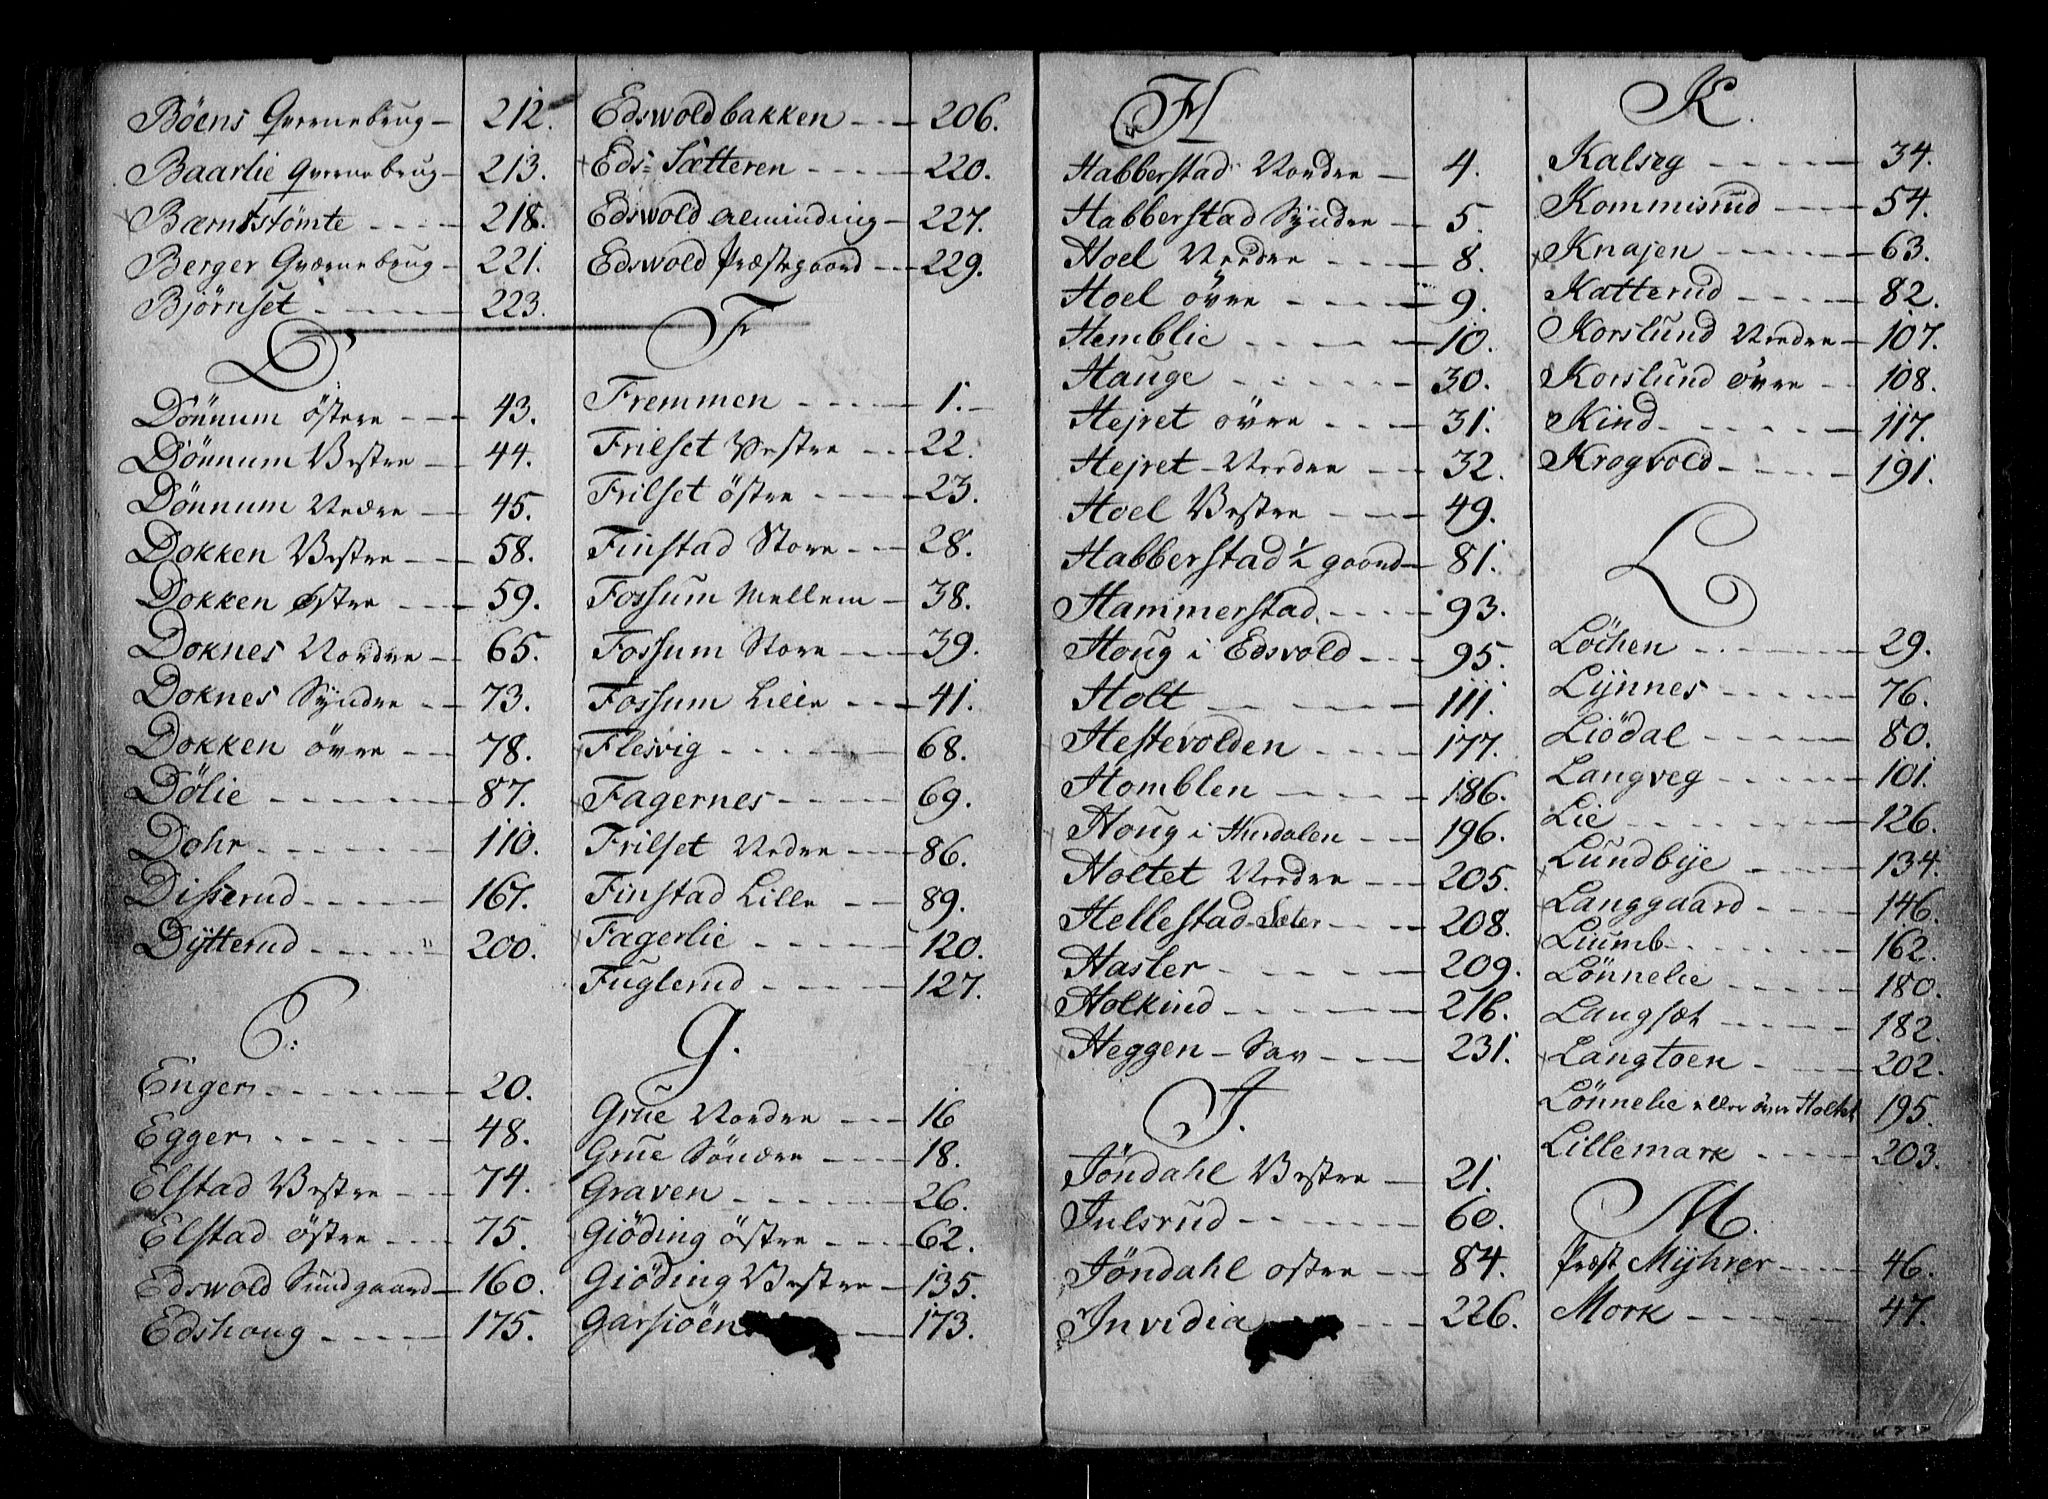 Böens Qvernebrug — 212.
Baarlie Qvernebrug — 213.
Bærntstömte — 218.
Berger Qværnebrug — 221.
Bjørnset — 223.
D
Dönnum östere — 43.
Dönnum Vestre — 44.
Dönnum Nedre — 45.
Dokken Vestre — 58.
Dokken østre — 59.
Doknes Nordre — 65.
Doknes Syndre — 73.
Dokken övre — 78.
Dölie — 87.
Dohr — 110.
Disserud — 167.
Dytterud — 200.
E:
Enger — 20.
Egger — 48.
Elstad Vestre — 74.
Elstad östre — 75.
Edswold Sundgaard — 160.
Edshoug — 175.
Edswoldbakken — 206.
Eds=Sætteren — 220.
Edswold Alminding — 227.
Edswold Præstegaard — 229.
F
Fremmen — 1.
Frilset Vestre — 22.
Frilset östre — 23.
Finstad Store — 28.
Fossum Mellem — 38.
Fossum Store — 39.
Fossum Lille — 41.
Flesvig — 68.
Fagernes — 69.
Frilset Nedre — 86.
Finstad Lille — 89.
Fagerlie — 120.
Fuglerud — 127.
G.
Grue Nordre — 16
Grue Söndre — 18.
Graven — 26.
Giöding östre — 62.
Giöding Vestre — 135.
Garsiöen — 173.
H
Habberstad Nordre — 4.
Habberstad Syndre — 5.
Hoel Nerdre — 8.
Hoel övre — 9.
Hemblie — 10.
Hauge — 30.
Hejret övre — 31.
Hejret Nerdre — 32.
Hoel Vestre — 49.
Habberstad ½ gaard — 81.
Hammerstad — 93.
Houg i Edsvold — 95.
Holt — 111.
Hestevolden — 177.
Homblen — 186.
Houg i Hurdalen — 196.
Holtet Nerdre — 205.
Hellestad Sæter — 208.
Hasler — 209.
Holkind — 216.
Heggen Sav — 231.
J.
Jöndahl Vestre — 21.
Julsrud — 60.
Jöndahl ostre — 84.
Invidia — 226.
K.
Kalseg — 34.
Kommisrud — 54.
Knajen — 63.
Katterud — 82.
Korslund Nerdre — 107.
Korslund øvre — 108.
Kind — 117.
Krogvold — 191.
L
Löchen — 29.
Lynnes — 76.
Liödal — 80.
Langveg — 101.
Lie — 126.
Lundbye — 134.
Langgaard — 146.
Liumb — 162.
Lönnelie — 180.
Langsæt — 182.
Langtoen — 202.
Lönnelie eller över Holtet 195.
Lillemark — 203.
M.
Præst Myhrer — 46.
Mork — 47.